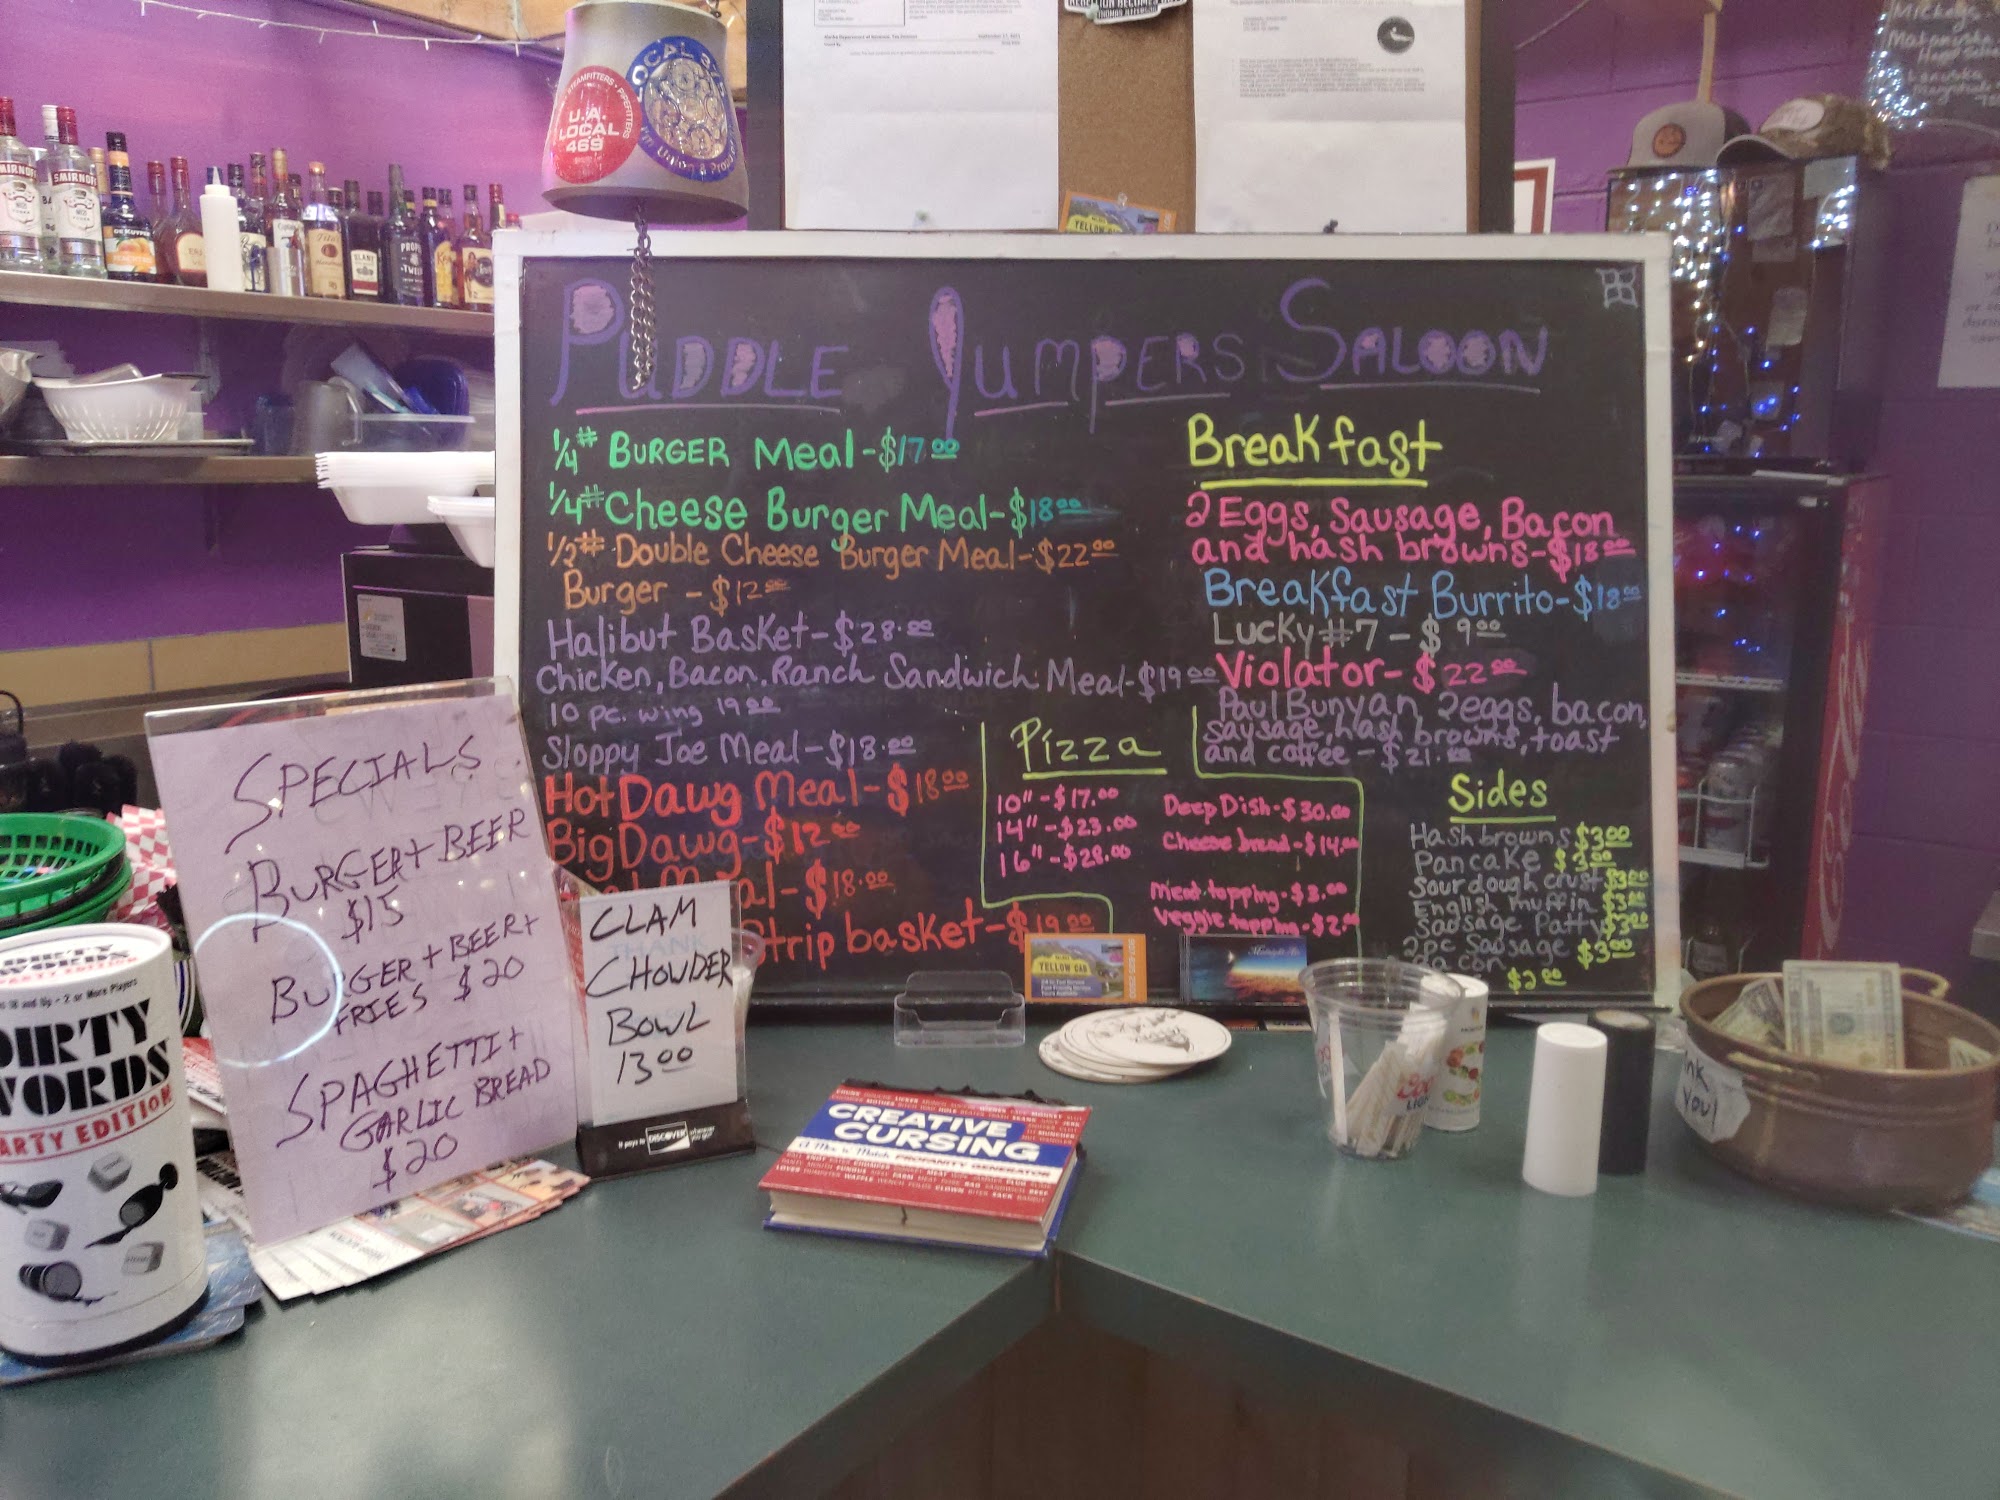 SMIRNOFF
SMIRNOFF
DE KUYPER
LOCAL
STEAMFITTERS • PIPEFITTERS
U.A.
LOCAL
469
September 17, 2021
YELLOW CAB
PUDDLE JUMPERS SALOON
1/4# BURGER Meal-$17.00
1/4# Cheese Burger Meal-$18.00
1/2# Double Cheese Burger Meal-$22.00
Burger - $12.00
Halibut Basket-$28.00
Chicken, Bacon, Ranch Sandwich Meal-$19.00
10 pc. wing 19.00
Sloppy Joe Meal-$18.00
Hot Dawg Meal-$18.00
Big Dawg-$12.00
-$18.00
Strip basket-$19.00
Pizza
10"-$17.00
14"-$23.00
16"-$28.00
Deep Dish-$30.00
Cheese bread-$14.00
meat topping-$3.00
Veggie topping-$2.00
Breakfast
2 Eggs, Sausage, Bacon
and hash browns-$18.00
Breakfast Burrito-$18.00
Lucky #7-$9.00
Violator-$22.00
Paul Bunyan 2eggs, bacon,
sausage, hash browns, toast
and coffee-$21.00
Sides
Hash browns $3.00
Pancake $3.00
Sourdough crust $3.00
English muffin $3.00
Sausage Patty $3.00
2pc Sausage $3.00
Bacon $2.00
SPECIALS
BURGER + BEER
$15
BURGER + BEER +
FRIES $20
SPAGHETTI +
GARLIC BREAD
$20
CLAM
CHOWDER
BOWL
13.00
It pays to DISCOVER
YELLOW CAB
DIRTY
WORDS
PARTY EDITION
18 and Up - 2 or More Players
DIRTY
WORDS
PARTY EDITION
CREATIVE
CURSING
A Mix 'n' Match PROFANITY GENERATOR
Coors
LIGHT
YOU!
Coca-Cola